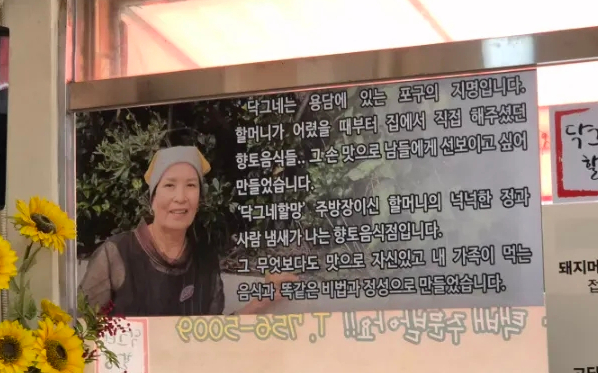 '닥그네는 용담에 있는 포구의 지명입니다.
할머니가 어렸을 때부터 집에서 직접 해주셨던
향토음식들.. 그 손 맛으로 남들에게 선보이고 싶어
만들었습니다.
'닥그네할망' 주방장이신 할머니의 넉넉한 정과
사람 냄새가 나는 향토음식점입니다.
그 무엇보다도 맛으로 자신있고 내 가족이 먹는
음식과 똑같은 비법과 정성으로 만들었습니다.
택배 주문받아요!! T. 756-5009
닥그
할
돼지머
접